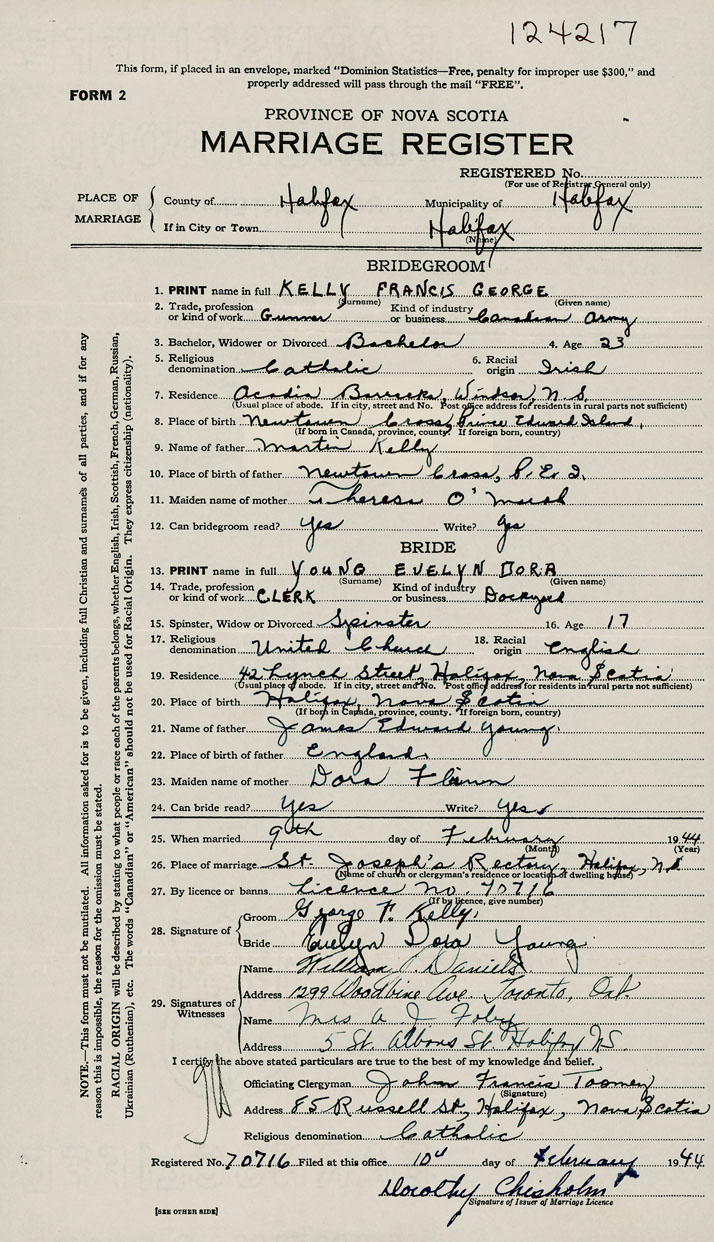 124217
This form, if placed in an envelope, marked "Dominion Statistics—Free, penalty for improper use $300," and
properly addressed will pass through the mail "FREE".
FORM 2
PROVINCE OF NOVA SCOTIA
MARRIAGE REGISTER
REGISTERED No.
(For use of Registrar General only)
PLACE OF MARRIAGE
County of Halifax Municipality of Halifax
If in City or Town Halifax
(Name)
BRIDEGROOM
1. PRINT name in full KELLY FRANCIS GEORGE
(Surname) (Given name)
2. Trade, profession or kind of work Gunner Kind of industry or business Canadian Army
3. Bachelor, Widower or Divorced Bachelor 4. Age 23
5. Religious denomination Catholic 6. Racial origin Irish
7. Residence Acadia Barracks, Windsor, N.S.
(Usual place of abode. If in city, street and No. Post office address for residents in rural parts not sufficient)
8. Place of birth Newtown Cross, Prince Edward Island,
(If born in Canada, province, county. If foreign born, country)
9. Name of father Martin Kelly
10. Place of birth of father Newtown Cross, P.E.I.
11. Maiden name of mother Theresa O'
12. Can bridegroom read? Yes Write? yes
BRIDE
13. PRINT name in full YOUNG EVELYN DORA
(Surname) (Given name)
14. Trade, profession or kind of work CLERK Kind of industry or business Dockyard
15. Spinster, Widow or Divorced Spinster 16. Age 17
17. Religious denomination United Church 18. Racial origin English
19. Residence 42 Lynch Street, Halifax, Nova Scotia
(Usual place of abode. If in city, street and No. Post office address for residents in rural parts not sufficient)
20. Place of birth Halifax, Nova Scotia
(If born in Canada, province, county. If foreign born, country)
21. Name of father James Edward Young.
22. Place of birth of father England.
23. Maiden name of mother Dora
24. Can bride read? Yes Write? Yes
25. When married 9th day of February 1944
(Month) (Year)
26. Place of marriage St. Joseph's Rectory, Halifax, N.S
(Name of church or clergyman's residence or location of dwelling house)
27. By licence or banns Licence no. 70716
(If by licence, give number)
28. Signature of
Groom George F. Kelly.
Bride Evelyn Dora Young
29. Signatures of Witnesses
Name William Daniels.
Address 1299 Woodbine Ave. Toronto, Ont.
Name Mrs A J Foley
Address 5 St. Albans St. Halifax NS.
I certify the above stated particulars are true to the best of my knowledge and belief.
Officiating Clergyman John Francis Toomey
(Signature)
Address 85 Russell St, Halifax, Nova Scotia
Religious denomination Catholic
Registered No. 70716 Filed at this office 10th day of February 1944
Dorothy Chisholm
Signature of Issuer of Marriage Licence
[SEE OTHER SIDE]
NOTE.—This form must not be mutilated. All information asked for is to be given, including full Christian and surnames of all parties, and if for any
reason this is impossible, the reason for the omission must be stated.
RACIAL ORIGIN will be described by stating to what people or race each of the parents belongs, whether English, Irish, Scottish, French, German, Russian,
Ukrainian (Ruthenian), etc. The words "Canadian" or "American" should not be used for Racial Origin. They express citizenship (nationality).